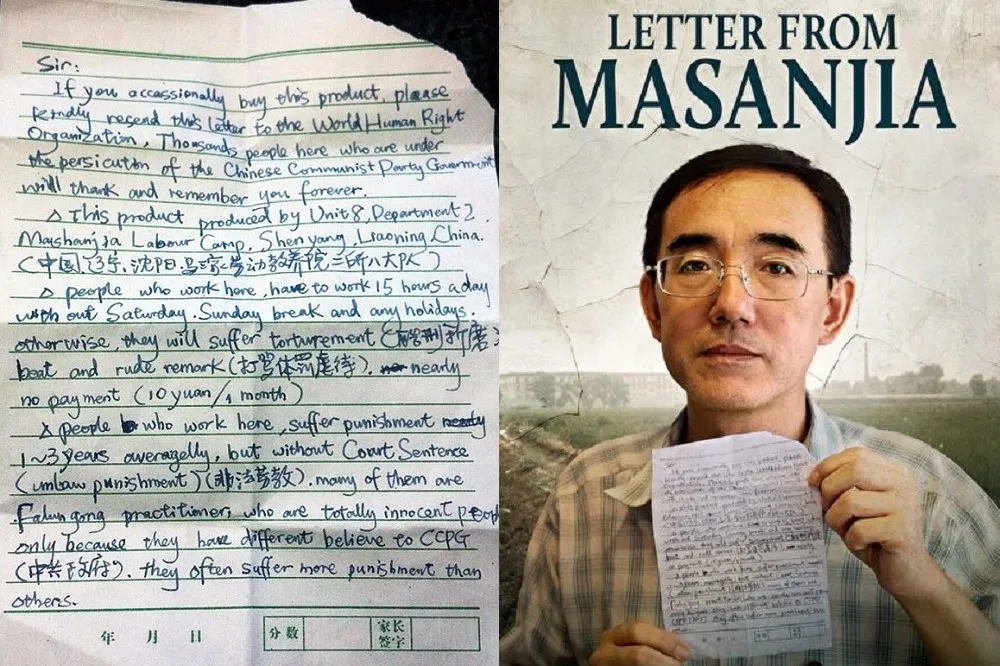 Sir:
If you accassionally buy this product, please
kindly resend this letter to the World Human Right
Organization, Thousands people here who are under
the persicution of the Chinese Communist Party Government
will thank and remember you forever.
△ This product produced by Unit 8, Department 2
Mashanjia Labour Camp, Shenyang, Liaoning, China.
(中国,辽宁,沈阳,马三家劳动教养院二所八大队)
△ people who work here, have to work 15 hours a day
with out Saturday, Sunday break and any holidays.
otherwise, they will suffer torturement (
beat and rude remark (打骂体罚虐待). nearly
no payment (10 yuan/1 month)
△ people who work here, suffer punishment
1~3 years averagelly, but without Court Sentence
(unlaw punishment) (非法劳教). many of them are
Falun gong practitioner, who are totally innocent people
only because they have different believe to CCPG
(中共政府). they often suffer more punishment than
others.
年 月 日
分数
家长
签字
LETTER FROM
MASANJIA